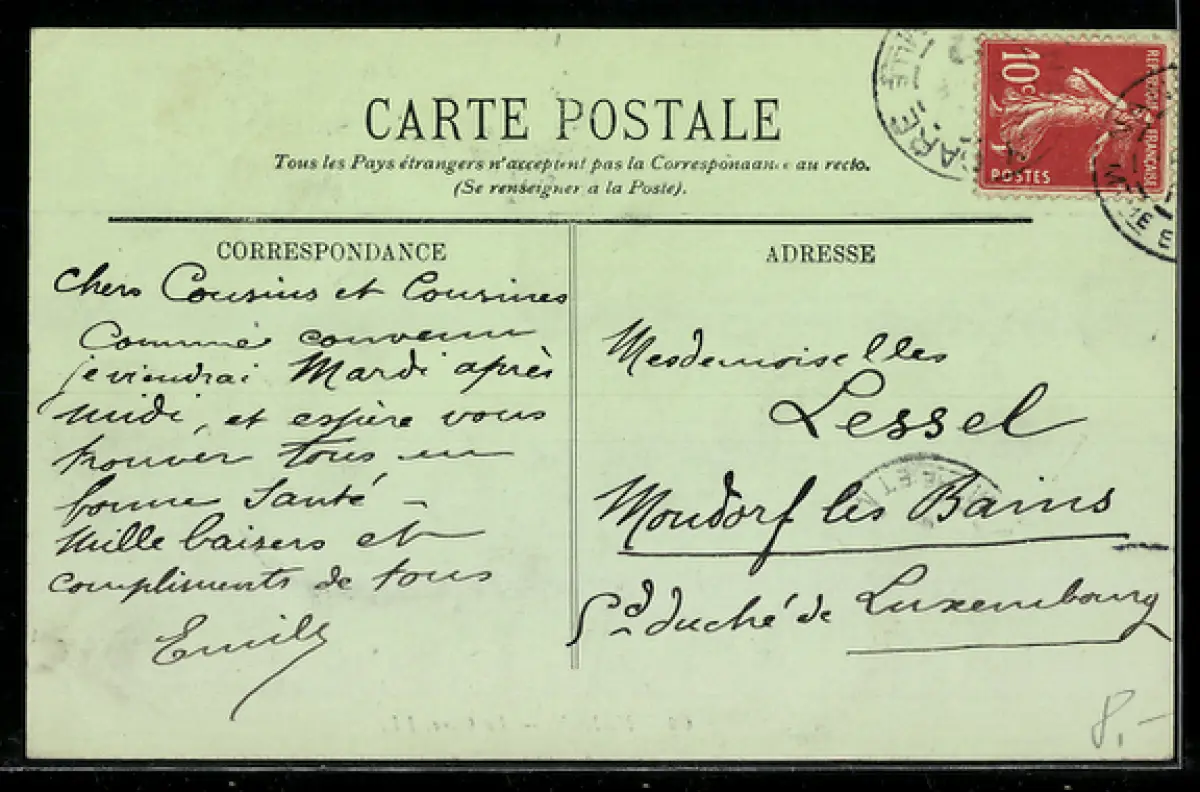 CARTE POSTALE
Tous les Pays étrangers n'acceptent pas la Correspondance au recto.
(Se renseigner a la Poste).
CORRESPONDANCE
Chers Cousins et Cousines
Comme convenu
je viendrai Mardi après
midi, et espère vous
trouver tous en
bonne Santé –
Mille baisers et
compliments de tous
Emile
ADRESSE
Mesdemoiselles
Lessel
Mondorf les Bains
Gd duché de Luxembourg
10c
REPUBLIQUE FRANÇAISE
POSTES
GARE
8,-